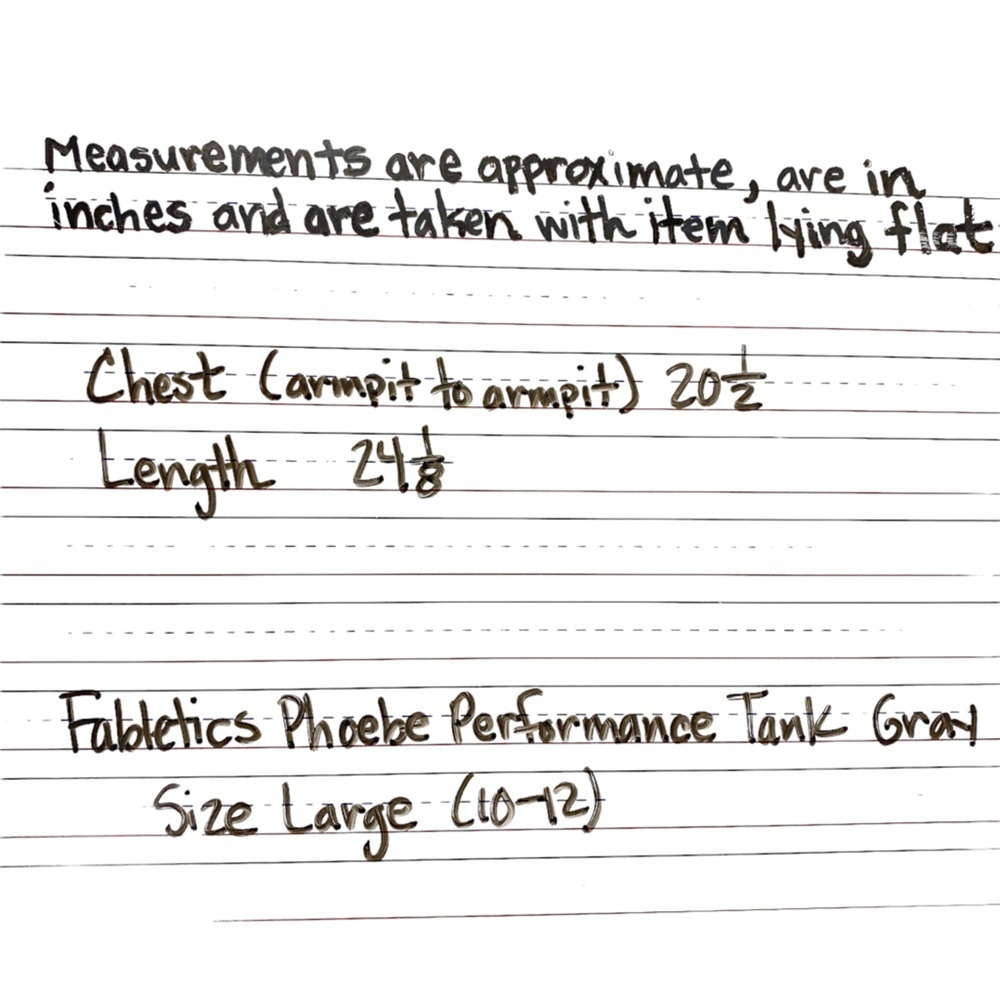 Measurements are approximate, are in
inches and are taken with item lying flat
Chest (armpit to armpit) 20 1/2
Length 24 1/8
Fabletics Phoebe Performance Tank Gray
Size Large (10-12)